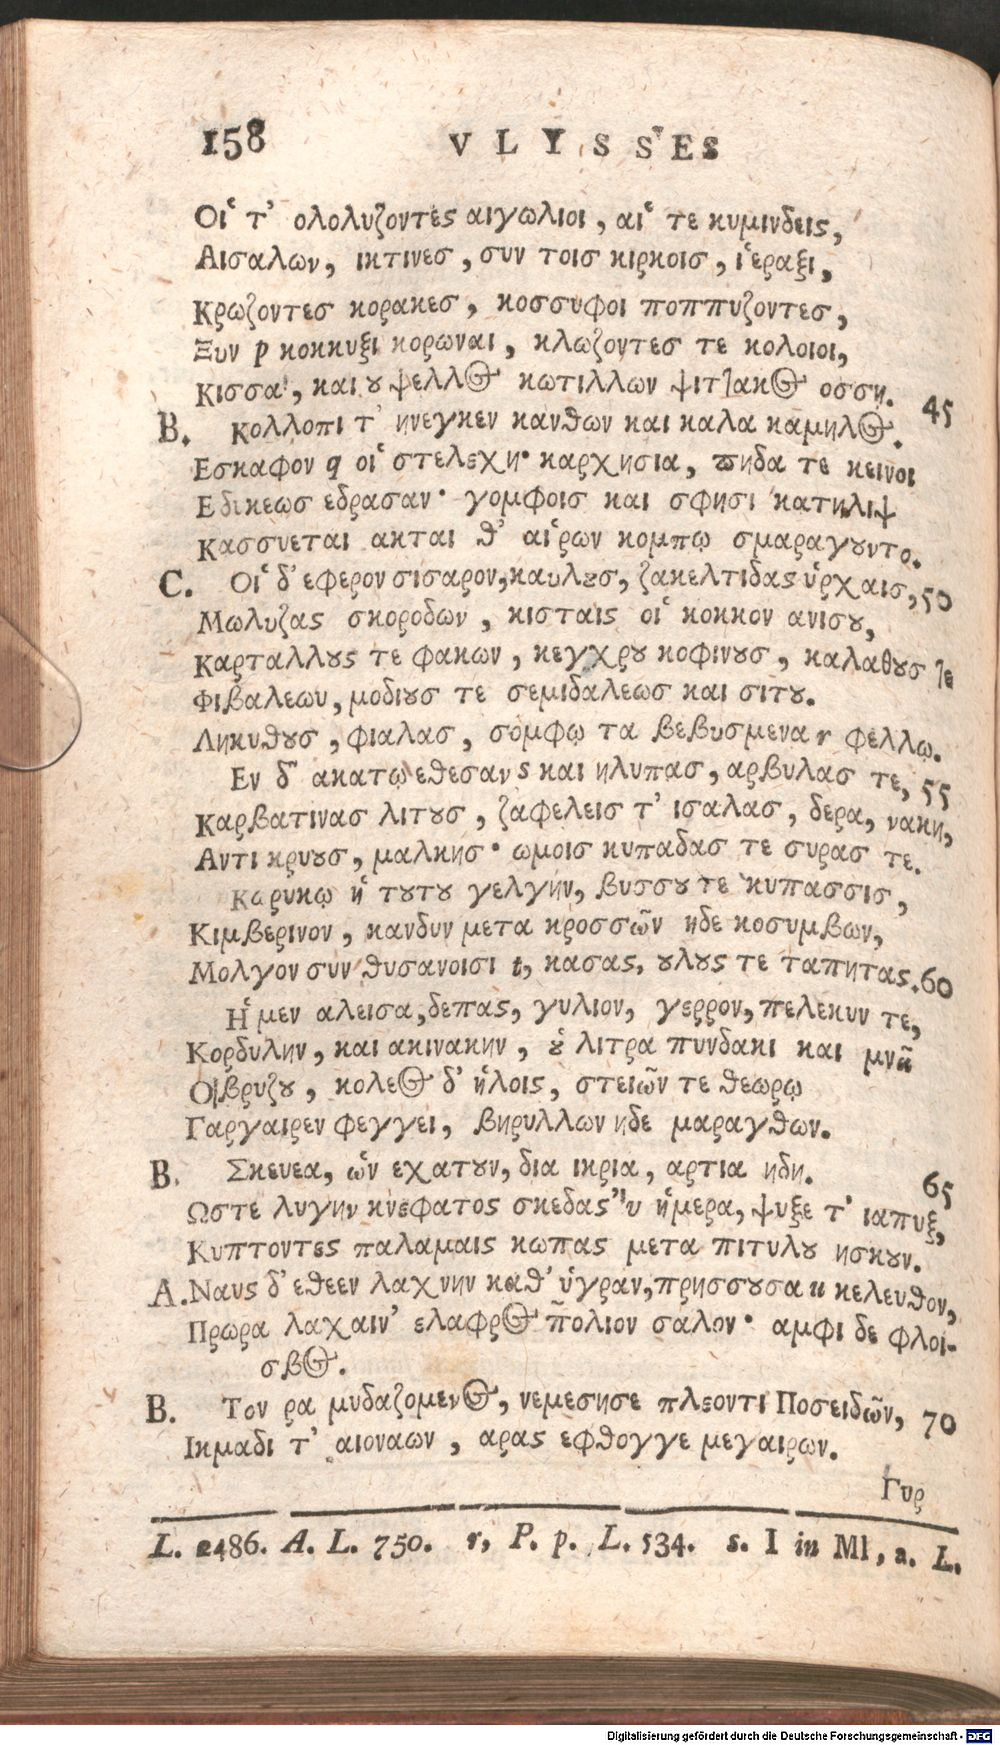 158 VLYSSES
Οἱ τ' ολολυζοντες αιγωλιοι, αἱ τε κυμινδεις,
Αισαλων, ικτινες, συν τοις κιρκοις, ἱεραξι,
Κρωζοντες κορακες, κοσσυφοι ποππυζοντες,
Ξυν p κοκκυξι κορωναι, κλωζοντες τε κολοιοι,
Κισσαι, και ȣ ψελλος κωτιλλων ψιττακος οσση. 45
B. Κολλοπι τ' ηνεγκεν κανθων και καλα καμηλος.
Εσκαφον q οἱ στελεχη· καρχησια, πηδα τε κεινοι
Εδικεως εδρασαν· γομφοις και σφησι κατηλιψ
Κασσυεται ακται θ' αἱρων κομπῳ σμαραγȣντο.
C. Οἱ δ' εφερον σισαρον, καυλȣς, ζακελτιδας ὑρχαις, 50
Μωλυζας σκοροδων, κισταις οἱ κοκκον ανισȣ,
Καρταλλȣς τε φακων, κεγχρȣ κοφινȣς, καλαθȣς τε
Φιβαλεων, μοδιȣς τε σεμιδαλεως και σιτȣ.
Ληκυθȣς, φιαλας, σομφῳ τα βεβυσμενα r φελλῳ.
Εν δ' ακατῳ εθεσαν s και ηλυπας, αρβυλας τε, 55
Καρβατινας λιτȣς, ζαφελεις τ' ισαλας, δερα, νακη,
Αντι κρυȣς, μαλκης· ωμοις κυπαδας τε συρας τε.
Καρυκῳ ἡ τȣτȣ γελγην, βυσσȣ τε κυπασσις,
Κιμβερινον, κανδυν μετα κροσσῶν ηδε κοσυμβων,
Μολγον συν θυσανοισι t, κασας, ȣλȣς τε ταπητας. 60
Ἡ μεν αλεισα, δεπας, γυλιον, γερρον, πελεκυν τε,
Κορδυλην, και ακινακην, ȣ̔ λιτρα πυνδακι και μνᾶ
Οἱβρυζȣ, κολεος δ' ἡλοις, στειῶν τε θεωρῳ
Γαργαιρεν φεγγει, βηρυλλων ηδε μαραγθων.
B. Σκευεα, ὡν εχατȣν, δια ικρια, αρτια ηδη. 65
Ωστε λυγην κνεφατος σκεδας' ἡμερα, ψυξε τ' ιαπυξ,
Κυπτοντες παλαμαις κωπας μετα πιτυλȣ ησκȣν.
A. Ναυς δ' εθεεν λαχνην καθ' ὑγραν, πρησσȣσα u κελευθον,
Πρωρα λαχαιν' ελαφρος πολιον σαλον· αμφι δε φλοι-
σβος.
B. Τον ρα μυδαζομενος, νεμεσησε πλεοντι Ποσειδῶν, 70
Ικμαδι τ' αιοναων, αρας εφθογγε μεγαιρων.
Γυρ
L. 2486. A. L. 750. r, P. p. L. 534. s. I in Ml, a. L.
Digitalisierung gefördert durch die Deutsche Forschungsgemeinschaft - DFG